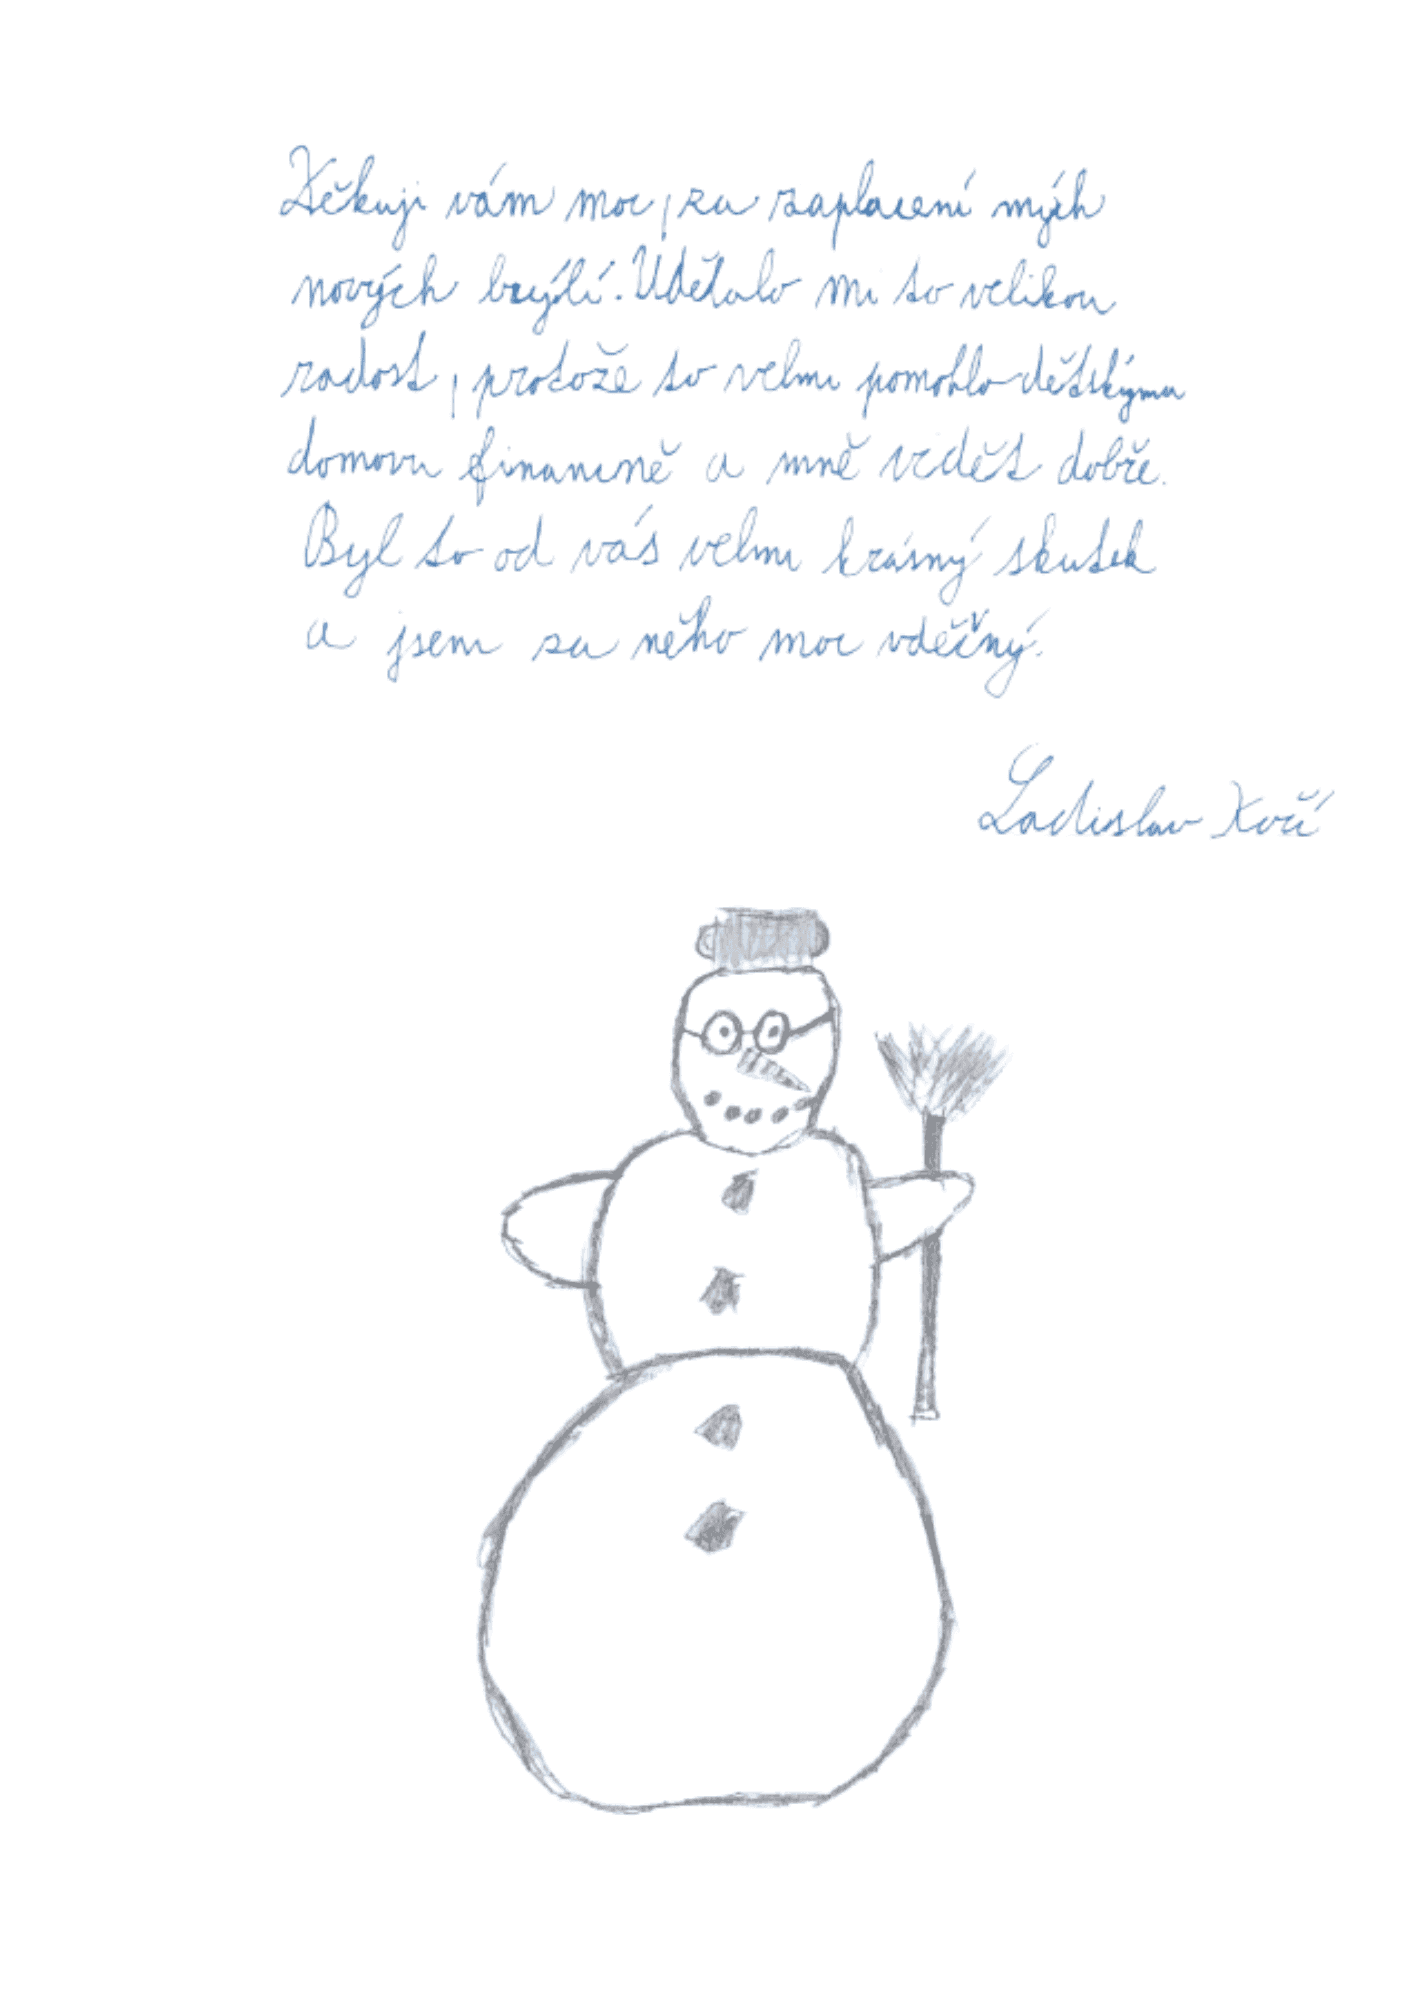 Děkuji vám moc, za zaplacení mých
nových brýlí. Udělalo mi to velikou
radost, protože to velmi pomohlo dětskýmu
domovu finančně a mně vidět dobře.
Byl to od vás velmi krásný skutek
a jsem za něho moc vděčný.
Ladislav